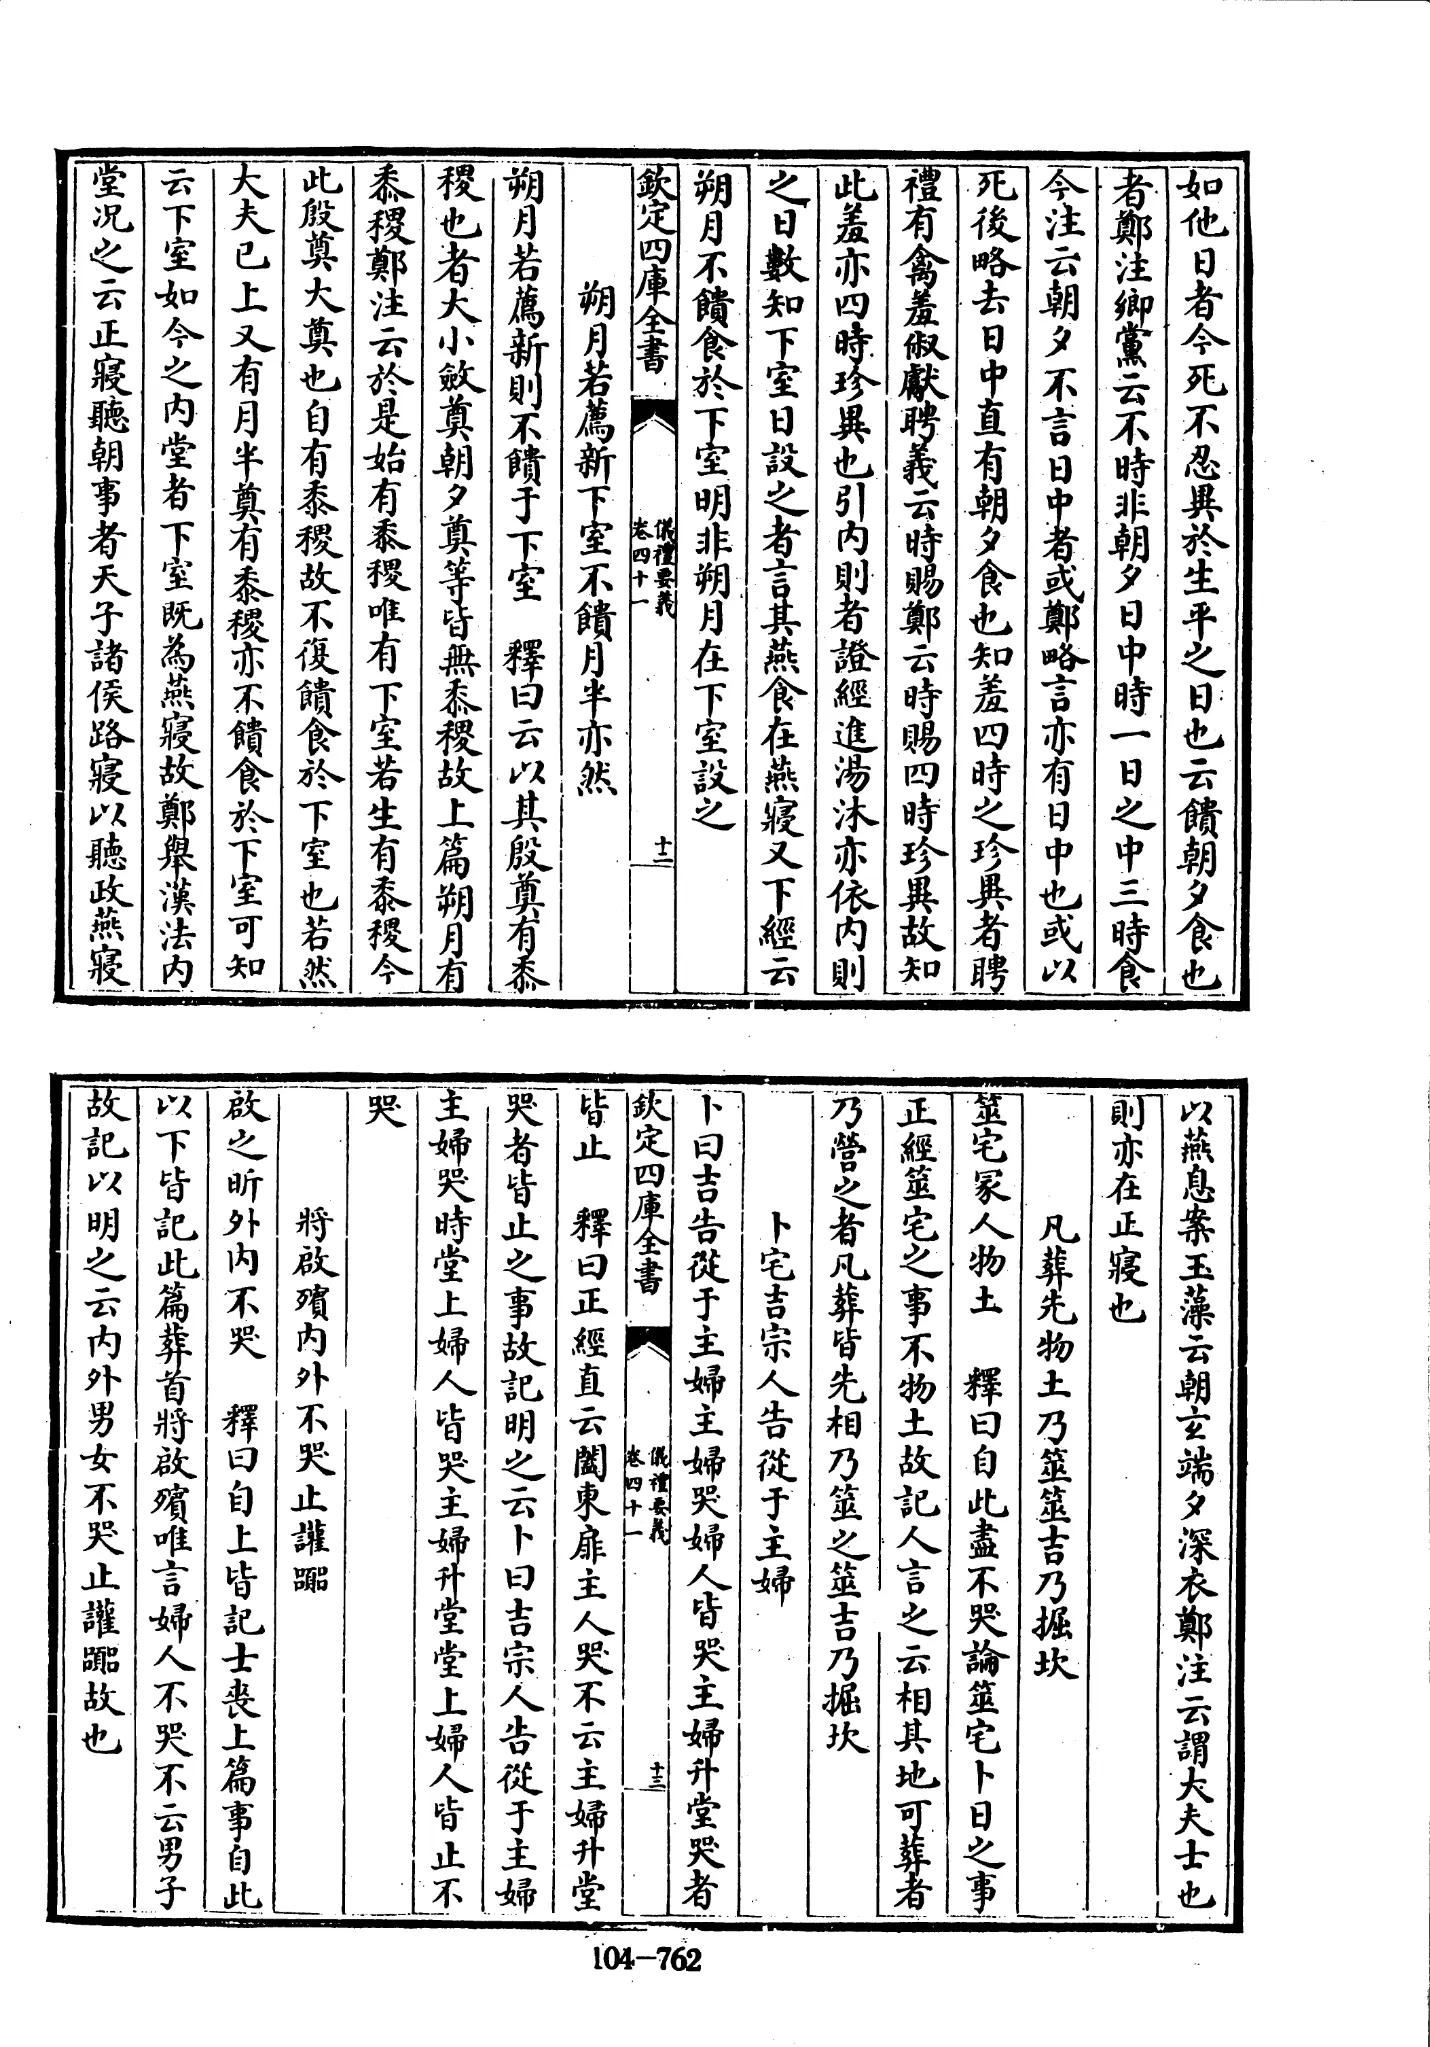 如他日者今死不忍異於生平之日也云饋朝夕食也
者鄭注鄉黨云不時非朝夕日中時一日之中三時食
今注云朝夕不言日中者或鄭略言亦有日中也或以
死後略去日中直有朝夕食也知羞四時之珍異者聘
禮有禽羞俶獻聘義云時賜鄭云時賜四時珍異故知
此羞亦四時珍異也引内則者證經進湯沐亦依内則
之日數知下室日設之者言其燕食在燕寢又下經云
朔月不饋食於下室明非朔月在下室設之
欽定四庫全書
儀禮要義
卷四十一
十二
朔月若薦新下室不饋月半亦然
朔月若薦新則不饋于下室 釋曰云以其殷奠有黍
稷也者大小斂奠朝夕奠等皆無黍稷故上篇朔月有
黍稷鄭注云於是始有黍稷唯有下室若生有黍稷今
此殷奠大奠也自有黍稷故不復饋食於下室也若然
大夫已上又有月半奠有黍稷亦不饋食於下室可知
云下室如今之内堂者下室既為燕寢故鄭舉漢法内
堂況之云正寢聽朝事者天子諸侯路寢以聽政燕寢
以燕息案玉藻云朝玄端夕深衣鄭注云謂大夫士也
則亦在正寢也
凡葬先物土乃筮筮吉乃掘坎
筮宅冢人物土 釋曰自此盡不哭論筮宅卜日之事
正經筮宅之事不物土故記人言之云相其地可葬者
乃營之者凡葬皆先相乃筮之筮吉乃掘坎
卜宅吉宗人告從于主婦
卜曰吉告從于主婦主婦哭婦人皆哭主婦升堂哭者
欽定四庫全書
儀禮要義
卷四十一
十三
皆止 釋曰正經直云闔東扉主人哭不云主婦升堂
哭者皆止之事故記明之云卜曰吉宗人告從于主婦
主婦哭時堂上婦人皆哭主婦升堂堂上婦人皆止不
哭
將啟殯内外不哭止讙嚻
啟之昕外内不哭 釋曰自上皆記士喪上篇事自此
以下皆記此篇葬首將啟殯唯言婦人不哭不云男子
故記以明之云内外男女不哭止讙嚻故也
104-762